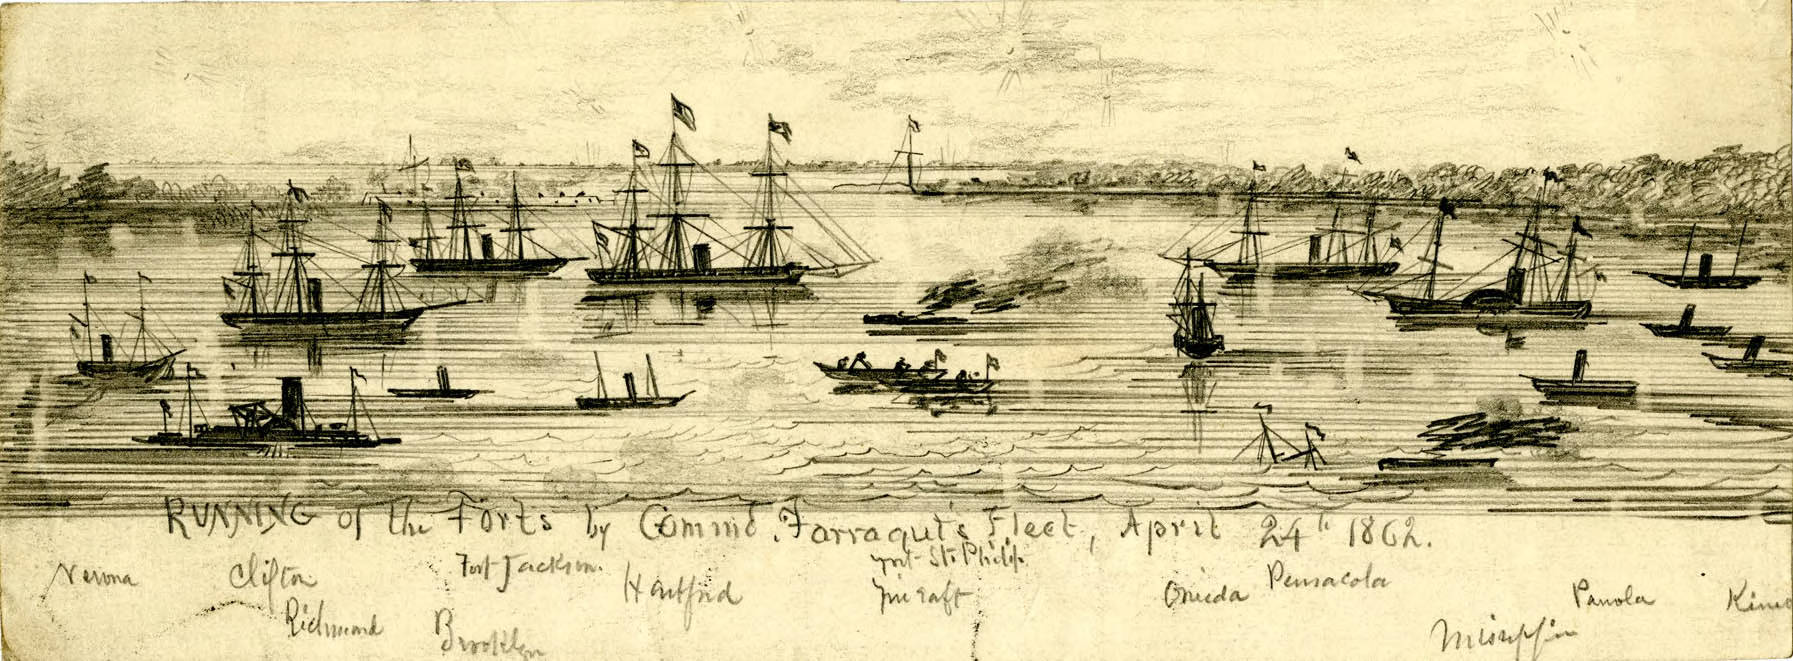 RUNNING of the Forts by Commd. Farragut's Fleet, April 24th 1862.
Verona Clifton Fort Jackson. Hartford Fort St. Philip Oneida Pensacola Panola
Fire raft
Richmond Brooklyn